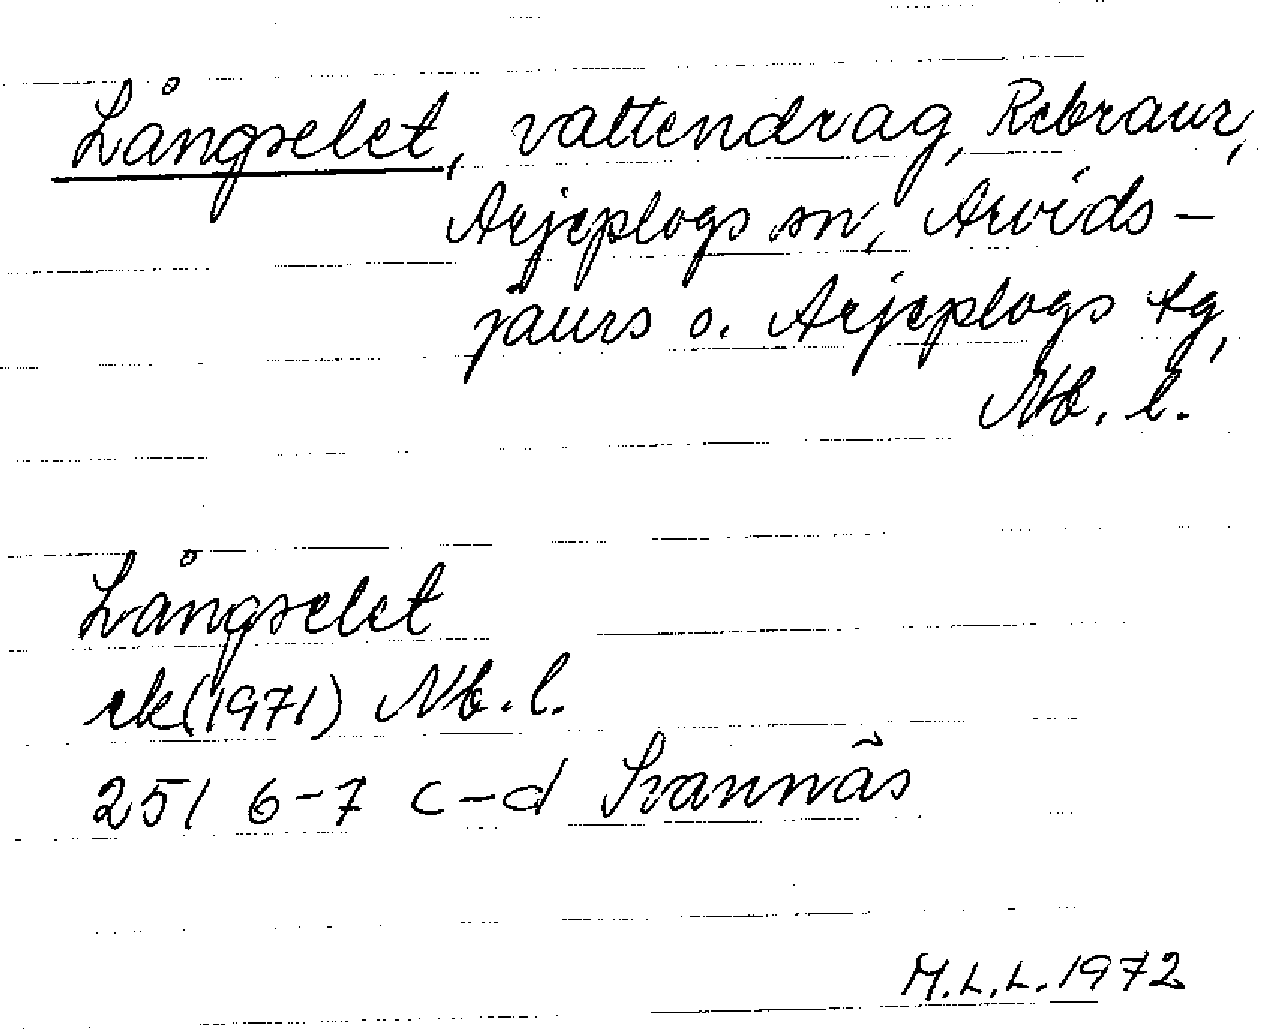 Långselet, vattendrag, Rebraur,
Arjeplogs sn, Arvids-
jaurs o. Arjeplogs tg,
Nb. l.
Långselet
rk(1971) Nb. l.
25I 6-7 c-d Svannäs
M.L.L. 1972